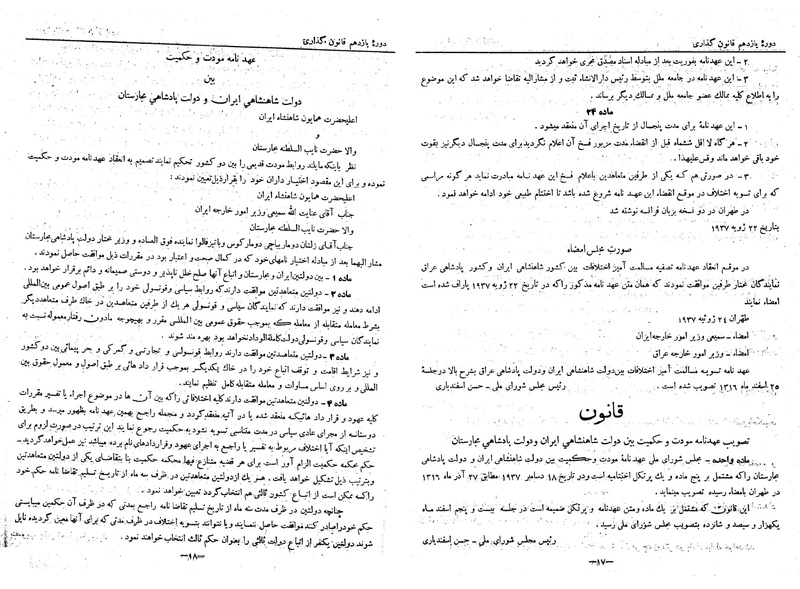 دورهٔ یازدهم قانون گذاری
۲ - این عهدنامه بفوریت بعد از مبادله اسناد مصدق مجری خواهد گردید
۳ - این عهدنامه در جامعه ملل بتوسط رئیس دارالانشاء ثبت و از مشارالیه تقاضا خواهد شد که این موضوع
را به اطلاع کلیه ممالک عضو جامعه ملل و ممالک دیگر برساند .
ماده ۲۴
۱ - این عهدنامهٔ برای مدت پنجسال از تاریخ اجرای آن منعقد میشود .
۲ - هر گاه لا اقل ششماه قبل از انقضاء مدت مزبور فسخ آن اعلام نگردید برای مدت پنجسال دیگر نیز بقوت
خود باقی خواهد ماند وقس علیهذا .
۳ - در صورتی هم که یکی از طرفین متعاهدین باعلام فسخ این عهد نامه مبادرت نماید هر گونه مراسمی
که برای تسویه اختلاف در موقع انقضاء این عهد نامه شروع شده باشد تا اختتام طبیعی خود ادامه خواهد نمود .
در طهران در دو نسخه بزبان فرانسه نوشته شد
بتاریخ ۲۲ ژویه ۱۹۳۷
صورت مجلس امضاء
در موقع امضاء عهدنامه تصفیه مسالمت آمیز اختلافات بین کشور شاهنشاهی ایران و کشور پادشاهی عراق
نمایندگان مختار طرفین موافقت نمودند که همان متن عهد نامه مذکور را که در تاریخ ۲۲ ژویه ۱۹۳۷ پاراف شده است
امضاء نمایند
طهران ۲۴ ژوئیه ۱۹۳۷
امضاء - سمیعی وزیر امور خارجه ایران
امضاء - وزیر امور خارجه عراق
عهد نامه تسویه مسالمت آمیز اختلافات بین دولت شاهنشاهی ایران و دولت پادشاهی عراق بشرح بالا در جلسهٔ
۲۵ اسفند ماه ۱۳۱۶ تصویب شده است . رئیس مجلس شورای ملی - حسن اسفندیاری
قانون
تصویب عهدنامه مودت و حکمیت بین دولت شاهنشاهی ایران و دولت پادشاهی مجارستان
ماده واحده - مجلس شورای ملی عهدنامه مودت و حکمیت بین دولت شاهنشاهی ایران و دولت پادشاهی
مجارستان را که مشتمل بر پنج ماده و یک پرتکل اختتامیه است و در تاریخ ۱۸ دسامبر ۱۹۳۷ مطابق ۲۷ آذر ماه ۱۳۱۶
در طهران بامضاء رسیده تصویب مینماید .
این قانون که مشتمل بر یک ماده و متن عهدنامه و پرتکل ضمیمه است در جلسه بیست و پنجم اسفند ماه
یکهزار و سیصد و شانزده بتصویب مجلس شورای ملی رسید .
رئیس مجلس شورای ملی - حسن اسفندیاری
—۹۷—
دورهٔ یازدهم قانون گذاری
عهد نامه مودت و حکمیت
بین
دولت شاهنشاهی ایران و دولت پادشاهی مجارستان
اعلیحضرت همایون شاهنشاه ایران
و
والا حضرت نایب السلطنه مجارستان
نظر باینکه مایلند روابط مودت قدیمی را بین دو کشور تحکیم نمایند تصمیم به انعقاد عهدنامه مودت و حکمیت
نموده و برای این مقصود اختیار داران خود را بقرار ذیل تعیین نمودند :
اعلیحضرت همایون شاهنشاه ایران
جناب آقای عنایت الله سمیعی وزیر امور خارجه ایران
والا حضرت نایب السلطنه مجارستان
جناب آقای زلتان دو مار یباچی دو مار کوس و باتیز فالوا نماینده فوق العاده و وزیر مختار دولت پادشاهی مجارستان
مشار الیهما بعد از مبادله اختیار نامهای خود که در کمال صحت و اعتبار بود در مقررات ذیل موافقت حاصل نمودند .
ماده ۱ - بین دولتین ایران و مجارستان و اتباع آنها صلح خلل ناپذیر و دوستی صمیمانه و دائم برقرار خواهد بود .
ماده ۲ - دولتین متعاهدتین موافقت دارند که روابط سیاسی و قونسولی خود را بر طبق اصول عمومی بین‌المللی
ادامه دهند و نیز موافقت دارند که نمایندگان سیاسی و قونسولی هر یک از طرفین متعاهدین در خاک طرف متعاهد دیگر
بشرط معامله متقابله از معامله که بموجب حقوق عمومی بین المللی مقرر و بهیچوجه مادون رفتار معموله نسبت به
نمایندگان سیاسی و قونسولی دولت کاملة الوداد نخواهد بود بهره مند شوند .
ماده ۳ - دولتین متعاهدتین موافقت دارند روابط قونسولی و تجارتی و گمرکی و بحر پیمائی بین دو کشور
و نیز شرایط اقامت و توقف اتباع خود را در خاک یکدیگر بموجب قرار داد هائی بر طبق اصول و معمول حقوق بین
المللی و بر روی اساس مساوات و معامله متقابله کامل تنظیم نمایند .
ماده ۴ - دولتین متعاهدتین موافقت دارند کلیه اختلافاتی را که بین آن ها در موضوع اجراء یا تفسیر مقررات
کلیه عهود و قرار داد هائیکه منعقد شده یا در آتیه منعقد گردد و منجمله راجع بهمین عهد نامه بظهور میرسد و بطریق
دوستانه از مجرای عادی سیاسی در مدت متناسبی تسویه نشود به حکمیت رجوع نمایند این ترتیب در صورت لزوم برای
تشخیص اینکه آیا اختلاف مربوط به تفسیر یا راجع به اجرای عهود و قراردادهای نام برده میباشد نیز عمل خواهد گردید -
حکم محکمه حکمیت الزام آور است برای هر قضیه متنازع فیها محکمه حکمیت بنا بتقاضای یکی از دولتین متعاهدتین
و بترتیب ذیل تشکیل خواهد یافت . هر یک از دولتین متعاهدتین در ظرف سه ماه از تاریخ تسلیم تقاضا نامه حکم خود
را که ممکن است از اتباع کشور ثالثی هم انتخاب گردد تعیین خواهد نمود .
چنانچه دولتین در ظرف مدت سه ماه از تاریخ تسلیم تقاضا نامه راجع بمدتی که در ظرف آن حکمین میبایستی
حکم خود را صادر کنند موافقت حاصل ننمایند و یا نتوانند بتسویه اختلاف در ظرف مدتی که برای آنها معین گردیده نایل
شوند دولتین یکنفر از اتباع دولت ثالثی را بعنوان حکم ثالث انتخاب خواهند نمود .
—۹۸—